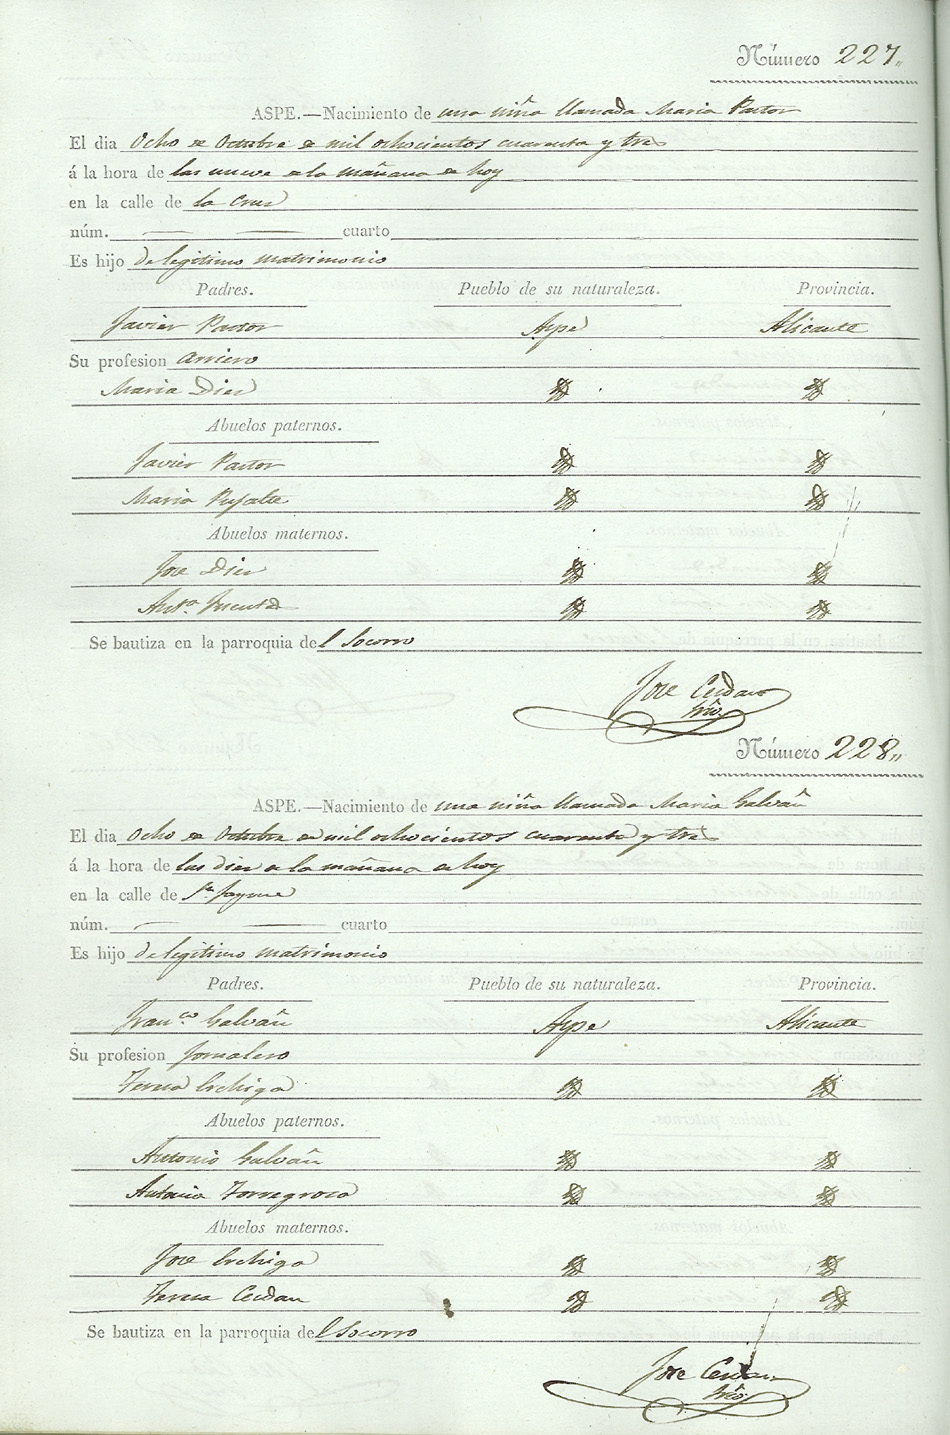 Número 227„
ASPE.—Nacimiento de una niña llamada Maria Pastor
El dia Ocho de Octubre de mil ochocientos cuarenta y tres
á la hora de las nueve de la mañana de hoy
en la calle de la Cruz
núm. cuarto
Es hijo de legitimo matrimonio
Padres. Pueblo de su naturaleza. Provincia.
Javier Pastor Aspe Alicante
Su profesion Arriero
Maria Diez
Abuelos paternos.
Javier Pastor
Maria Pujalte
Abuelos maternos.
Jose Diez
Antª.
Se bautiza en la parroquia del Socorro
Jose Cerdan
Srio.
Número 228„
ASPE.—Nacimiento de una niña llamada Maria Galvañ
El dia Ocho de Octubre de mil ochocientos cuarenta y tres
á la hora de las diez de la mañana de hoy
en la calle de Sn. Jayme
núm. cuarto
Es hijo de legitimo matrimonio
Padres. Pueblo de su naturaleza. Provincia.
Franco. Galvañ Aspe Alicante
Su profesion Jornalero
Teresa Erchiga
Abuelos paternos.
Antonio Galvañ
Antonia Torregrosa
Abuelos maternos.
Jose Erchiga
Teresa Cerdan
Se bautiza en la parroquia del Socorro
Jose Cerdan
Srio.